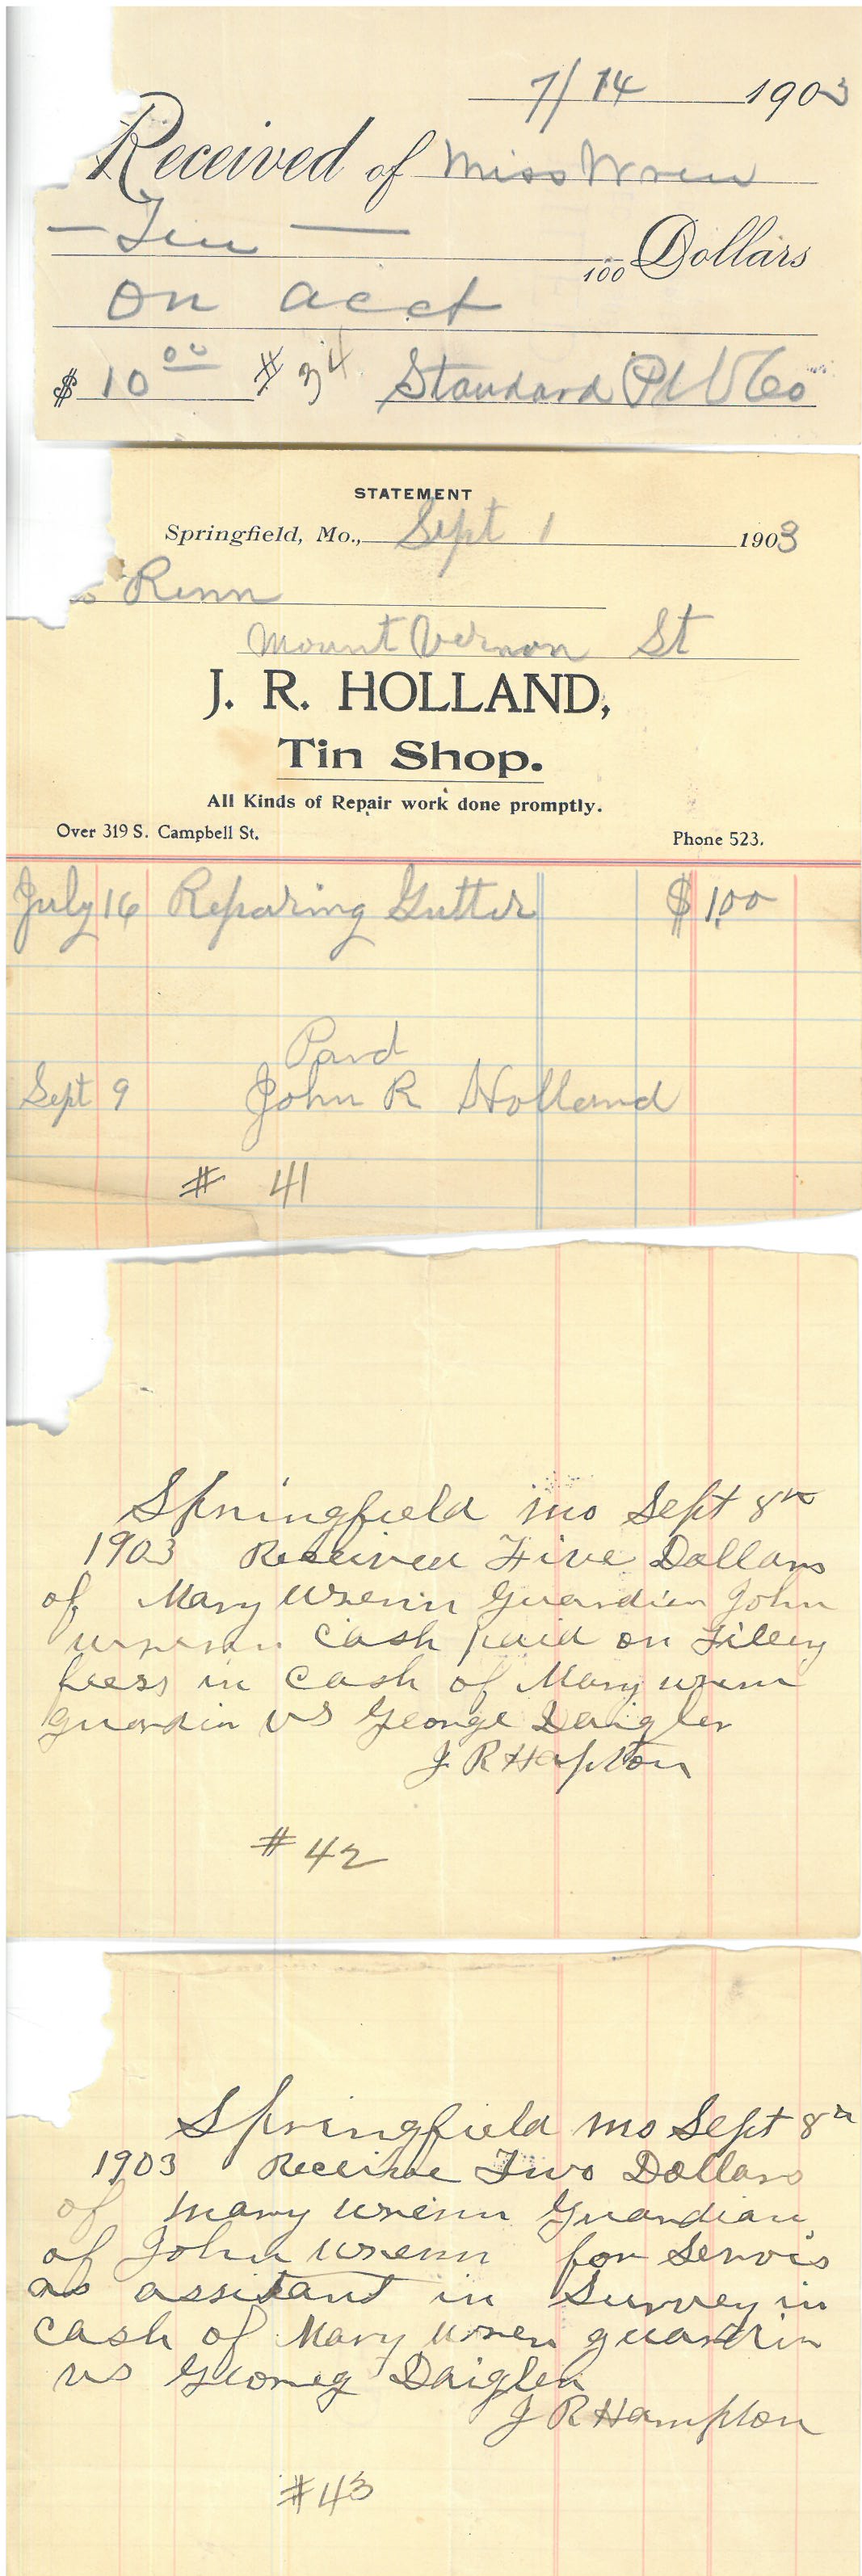 7/14 1903
Received of Miss Wren
— Ten —
100 Dollars
on acct
$ 10 00 # 34 Standard Co
STATEMENT
Springfield, Mo., Sept 1 1903
Renn
Mount Vernon St
J. R. HOLLAND,
Tin Shop.
All Kinds of Repair work done promptly.
Over 319 S. Campbell St. Phone 523.
July 16 Reparing Gutter $1.00
Paid
Sept 9 John R Holland
# 41
Springfield Mo Sept 8th
1903 Received Five Dollars
of Mary Wrenn Guardian John
Wrenn cash paid on
feess in cash of Mary Wrenn
guardin VS George Daigler
J R Hapton
# 42
Springfield Mo Sept 8th
1903 Receive Two Dollars
of Mary Wrenn Guardian
of John Wrenn for Servis
as assitant in Survey in
cash of Mary Wren guardin
vs Georg Daigler
J R Hampton
#43